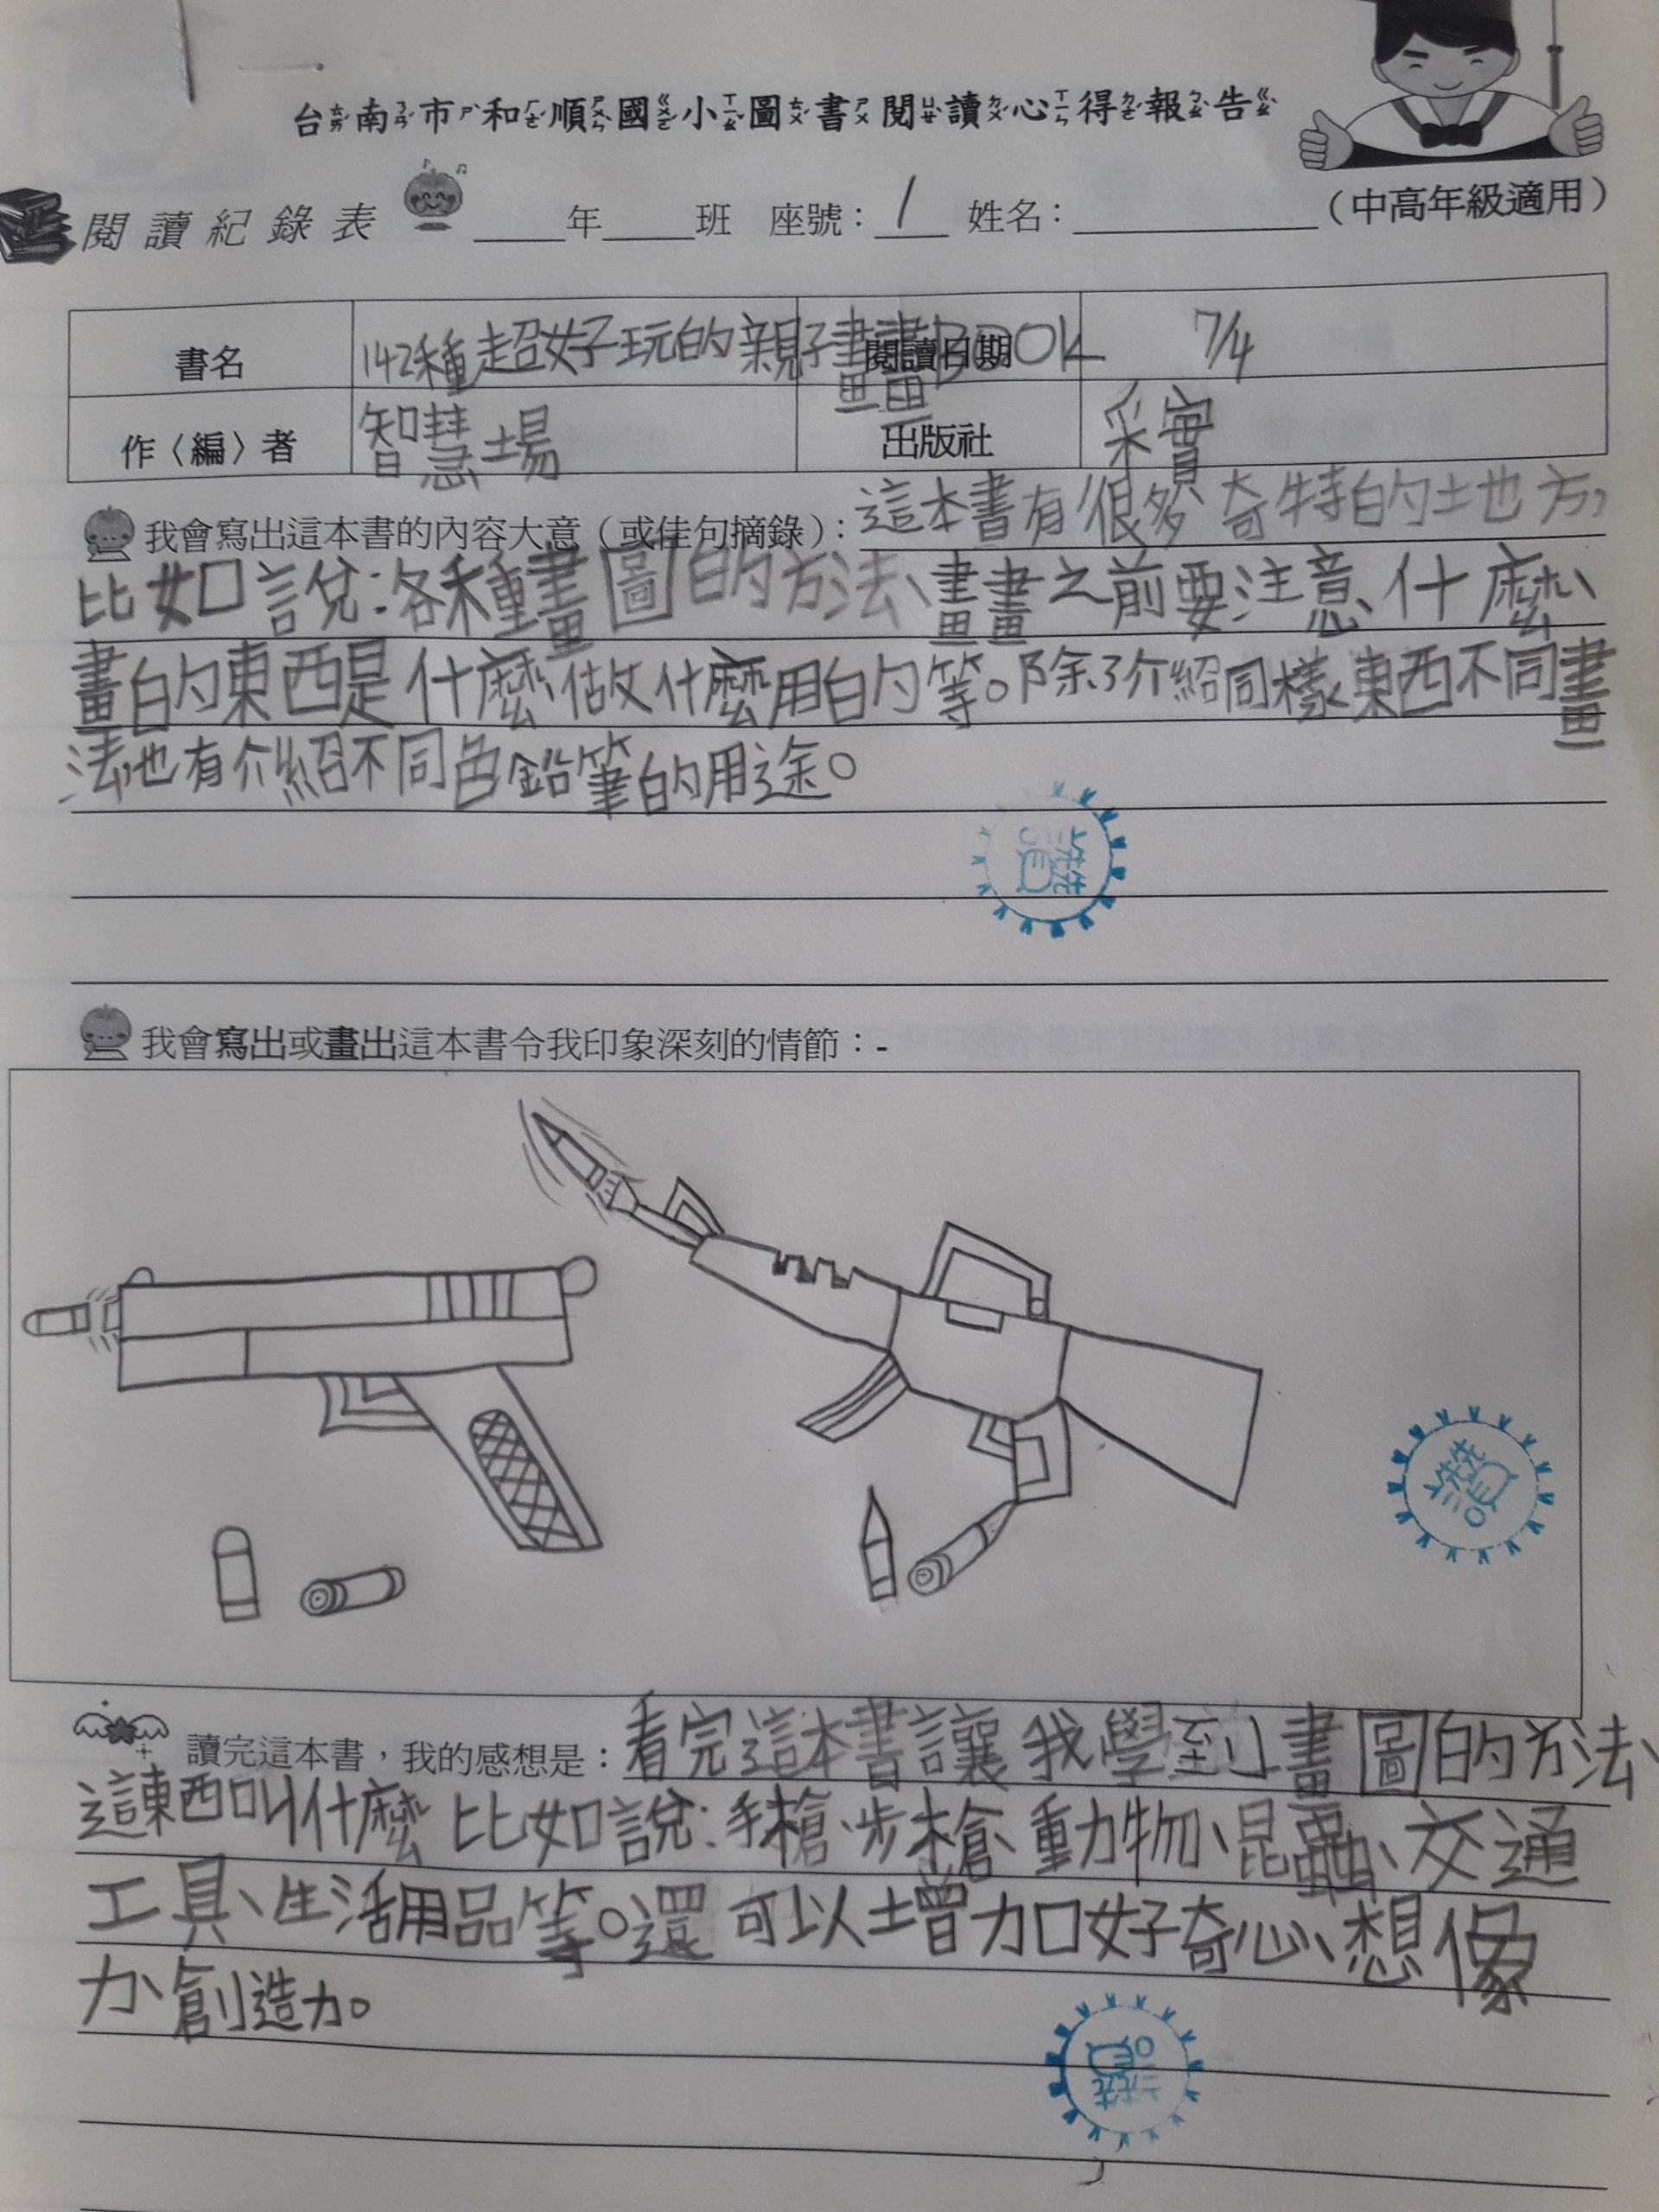 台南市和順國小圖書閱讀心得報告
閱讀紀錄表 ____年____班 座號：1 姓名：__________（中高年級適用）
書名 142種超好玩的親子畫畫BOOK 閱讀日期 7/4
作〈編〉者 智慧場 出版社 采實
我會寫出這本書的內容大意（或佳句摘錄）：這本書有很多奇特的地方，
比如說：各種畫圖的方法、畫畫之前要注意什麼、
畫的東西是什麼、做什麼用的等。除了介紹同樣東西不同畫
法，也有介紹不同色鉛筆的用途。
讚
我會寫出或畫出這本書令我印象深刻的情節：-
讚
讀完這本書，我的感想是：看完這本書讓我學到畫圖的方法、
這東西叫什麼，比如說：手槍、步槍、動物、昆蟲、交通
工具、生活用品等。還可以增加好奇心、想像
力、創造力。
讚